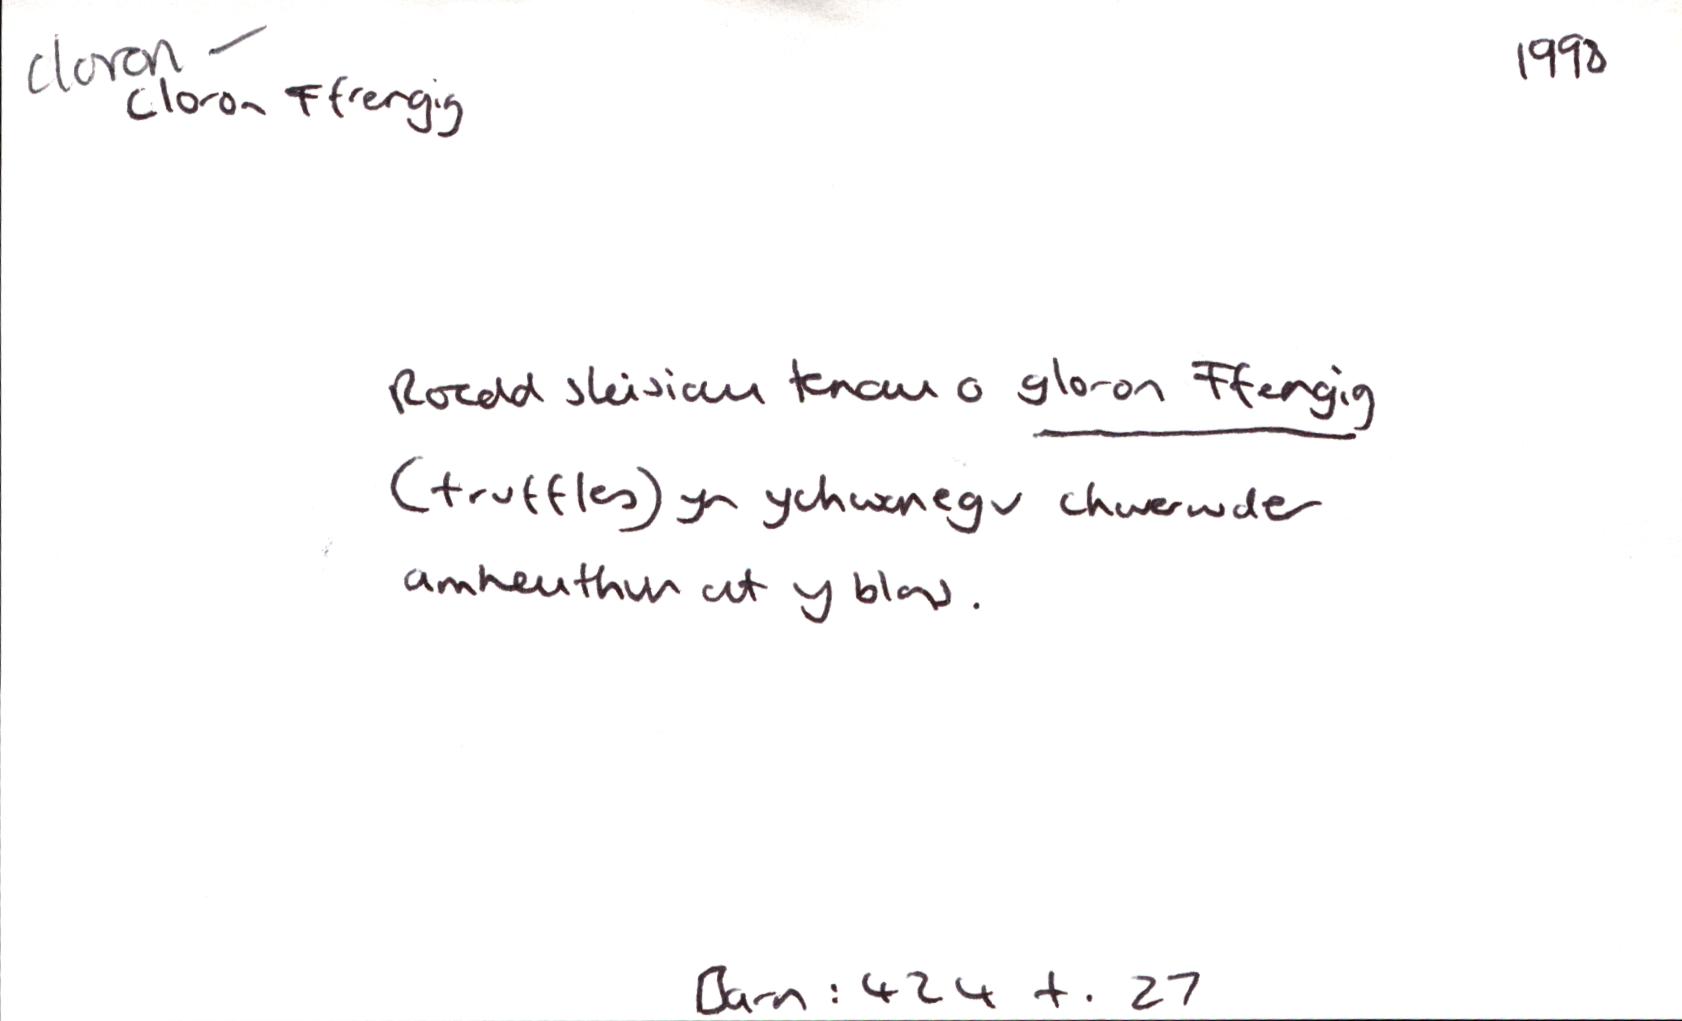 cloron –
cloron Ffrengig
1998
Roedd sleisiau tenau o gloron Ffengig
(truffles) yn ychwanegu chwerwder
amheuthun at y blas.
Barn : 424 t. 27